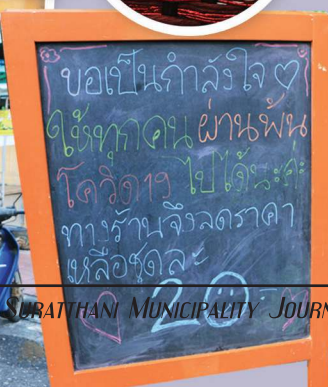 ขอเป็นกำลังใจ♡
ให้ทุกคนผ่านพ้น
โควิด19 ไปได้นะค่ะ
ทางร้านจึงลดราคา
เหลือชุดละ
20.-
SURATTHANI MUNICIPALITY JOURN